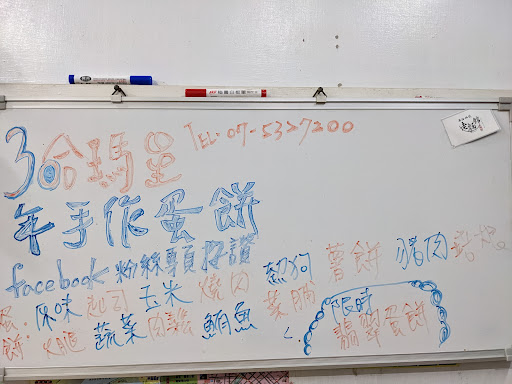 3哈瑪星 TEL:07-5327200
年手作蛋餅
facebook 粉絲專頁 按讚
蛋餅: 原味 起司 玉米 燒肉 熱狗 薯餅 豬肉
火腿 蔬菜 肉鬆 鮪魚 菜脯
限時
翡翠蛋餅